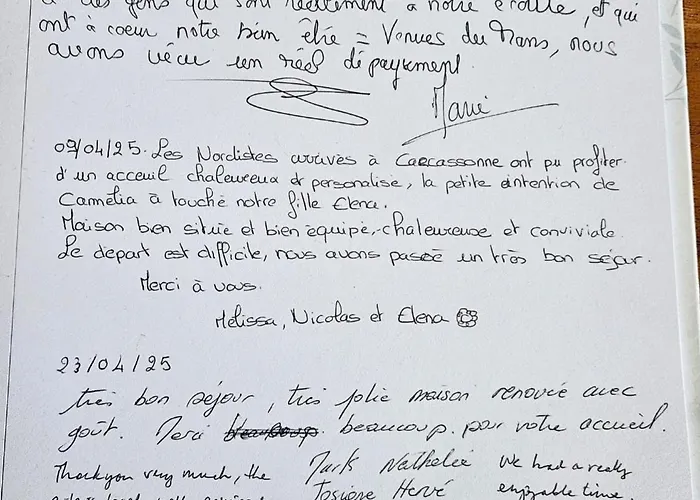 à des gens qui sont réellement à notre écoute, et qui
ont à coeur notre bien être = Venues du Mans, nous
avons vécu un réel dépaysement.
Marie
09/04/25. Les Nordistes arrivés à Carcassonne ont pu profiter
d'un acceuil chaleureux et personalisé, la petite intention de
Camélia à touché notre fille Elena.
Maison bien située et bien équipé, chaleureuse et conviviale.
Le départ est difficile, nous avons passé un très bon séjour.
Merci à vous.
Mélissa, Nicolas et Elena
23/04/25
très bon séjour, très jolie maison renovée avec
goût. Merci beaucoup beaucoup. pour votre accueil.
Thank you very much, the Nathalie We had a really
Josiane Hervé enjoyable time.